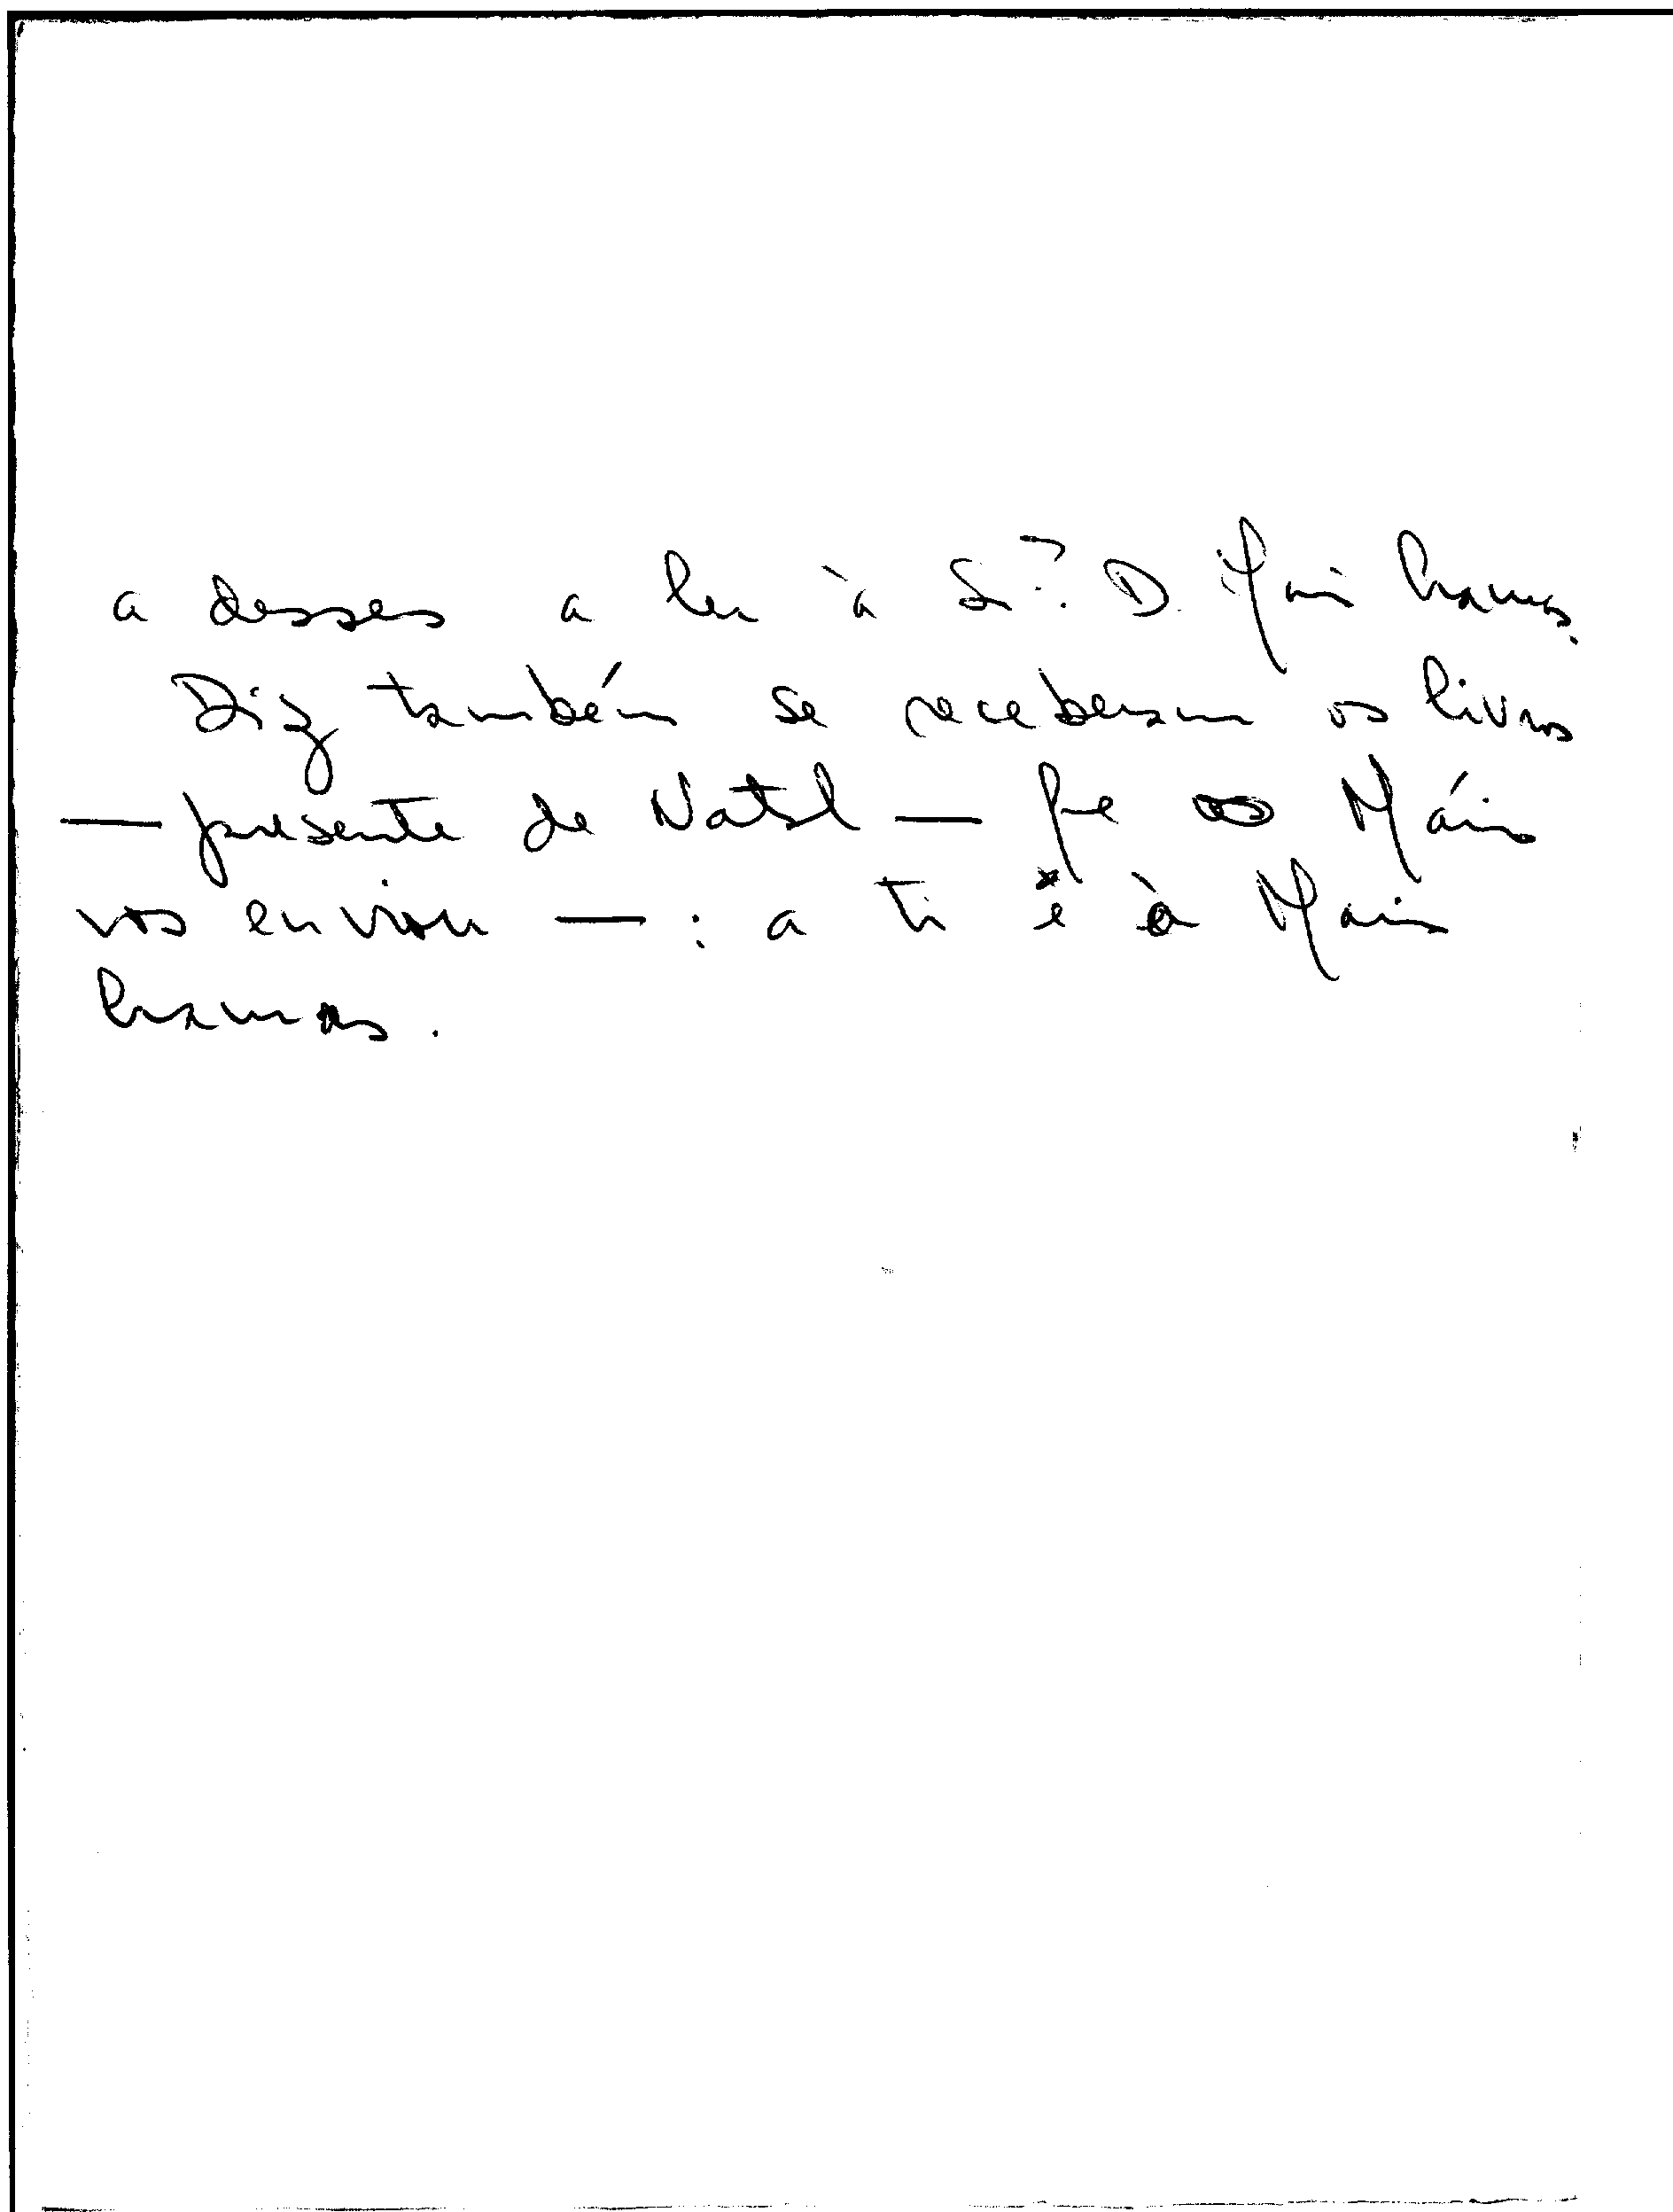 a desses a ler à Sr.ª D. Maria Lramos.
Diz também se receberam os livros
— presente de Natal — que o Mário
vos enviou — : a ti e à Maria